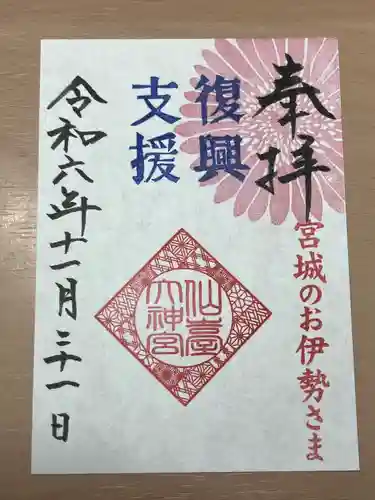 奉拝
宮城のお伊勢さま
復興
支援
仙臺
大神宮
令和六年十一月二十一日